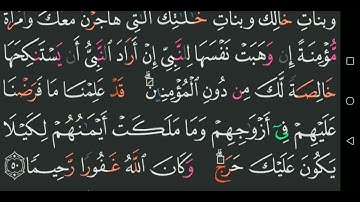 وَبَنَاتِ خَالِكَ وَبَنَاتِ خَٰلَٰتِكَ ٱلَّٰتِي هَاجَرْنَ مَعَكَ وَٱمْرَأَةً
مُّؤْمِنَةً إِن وَهَبَتْ نَفْسَهَا لِلنَّبِيِّ إِنْ أَرَادَ ٱلنَّبِيُّ أَن يَسْتَنكِحَهَا
خَالِصَةً لَّكَ مِن دُونِ ٱلْمُؤْمِنِينَ ۗ قَدْ عَلِمْنَا مَا فَرَضْنَا
عَلَيْهِمْ فِىٓ أَزْوَٰجِهِمْ وَمَا مَلَكَتْ أَيْمَٰنُهُمْ لِكَيْلَا
يَكُونَ عَلَيْكَ حَرَجٌ ۗ وَكَانَ ٱللَّهُ غَفُورًا رَّحِيمًا ۝٥٠